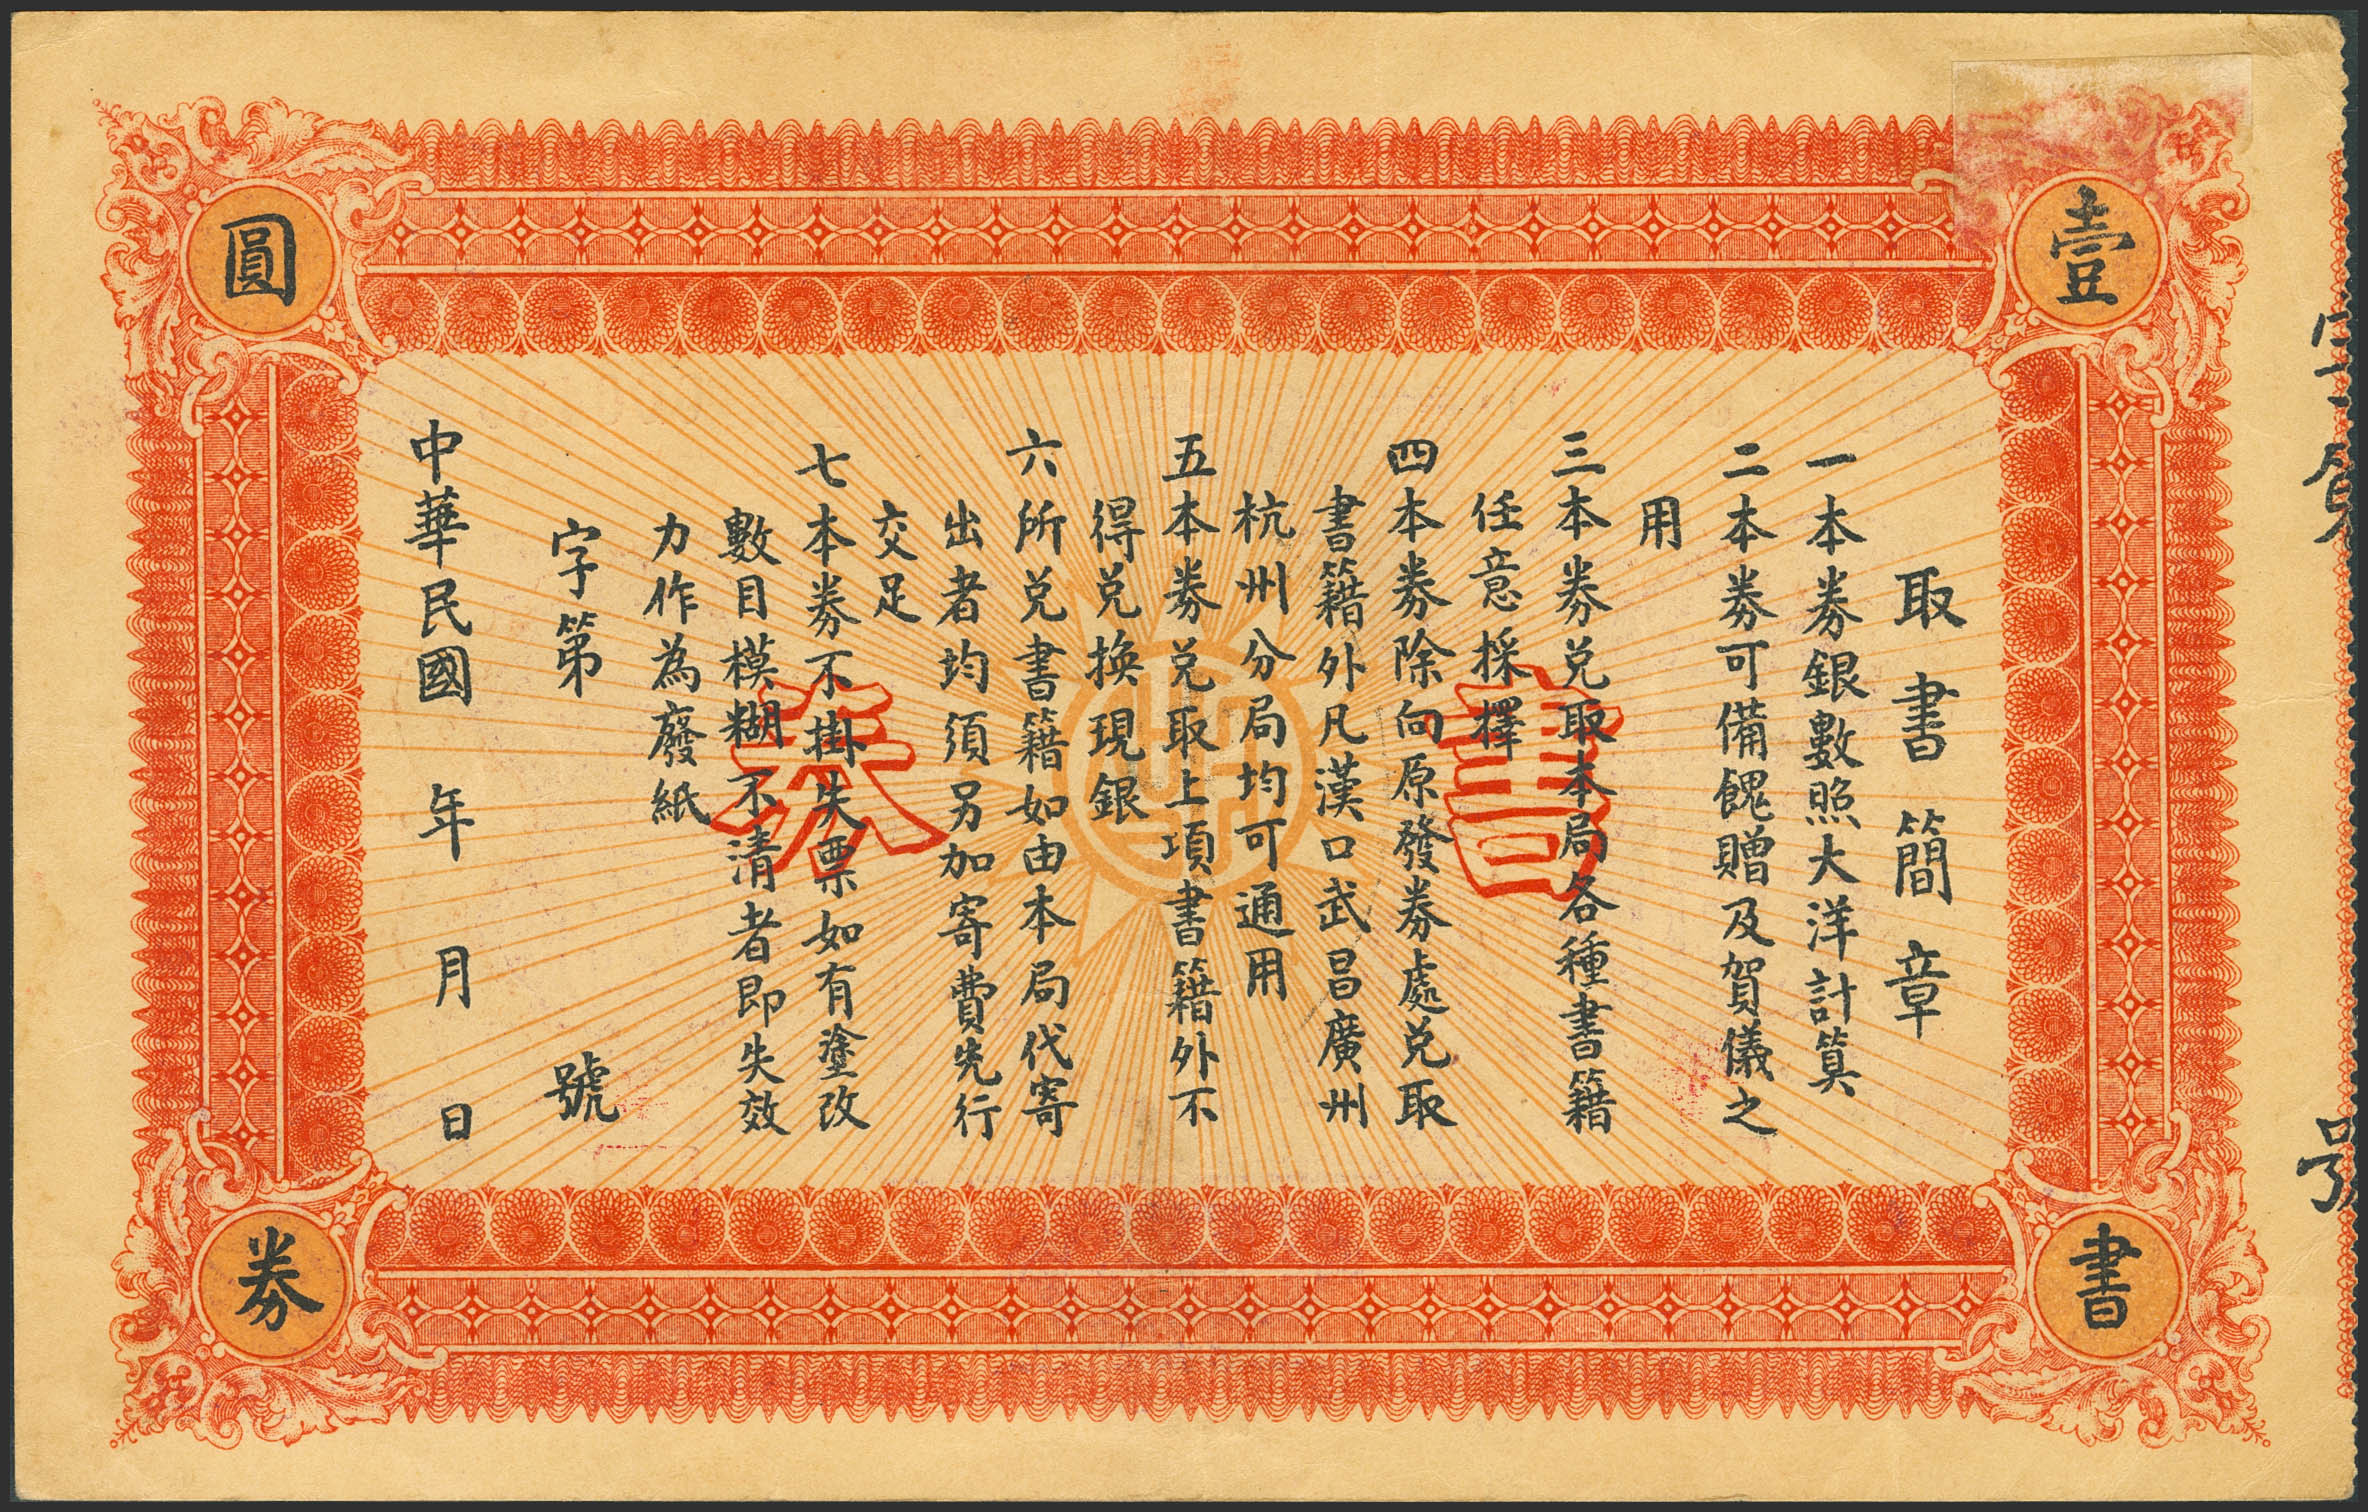 壹圓
書券
書券
取書簡章
一本券銀數照大洋計算
二本券可備餽贈及賀儀之
用
三本券兑取本局各種書籍
任意採擇
四本券除向原發券處兑取
書籍外凡漢口武昌廣州
杭州分局均可通用
五本券兑取上項書籍外不
得兑換現銀
六所兑書籍如由本局代寄
出者均須另加寄費先行
交足
七本券不掛失票如有塗改
數目模糊不清者即失效
力作為廢紙
字第 號
中華民國 年 月 日